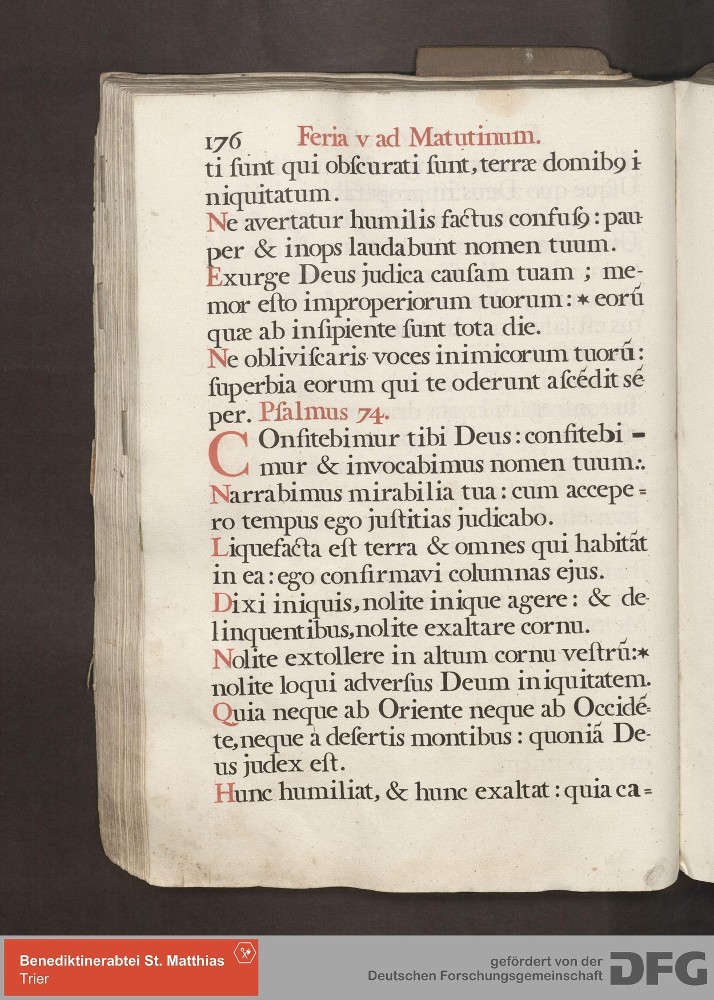 176 Feria v ad Matutinum.
ti ſunt qui obſcurati ſunt, terræ domibꝰ i-
niquitatum.
Ne avertatur humilis factus confuſꝰ: pau-
per & inops laudabunt nomen tuum.
Exurge Deus judica cauſam tuam ; me-
mor eſto improperiorum tuorum: * eorũ
quæ ab inſipiente ſunt tota die.
Ne obliviſcaris voces inimicorum tuorũ:
ſuperbia eorum qui te oderunt aſcẽdit sẽ
per. Pſalmus 74.
COnfitebimur tibi Deus: confitebi -
mur & invocabimus nomen tuum:.
Narrabimus mirabilia tua: cum accepe =
ro tempus ego juſtitias judicabo.
Liquefacta eſt terra & omnes qui habitãt
in ea: ego confirmavi columnas ejus.
Dixi iniquis, nolite inique agere: & de-
linquentibus, nolite exaltare cornu.
Nolite extollere in altum cornu veſtrũ:*
nolite loqui adverſus Deum iniquitatem.
Quia neque ab Oriente neque ab Occidẽ=
te, neque à deſertis montibus: quoniã De-
us judex eſt.
Hunc humiliat, & hunc exaltat: quia ca =
Benediktinerabtei St. Matthias
Trier
gefördert von der
Deutschen Forschungsgemeinschaft DFG